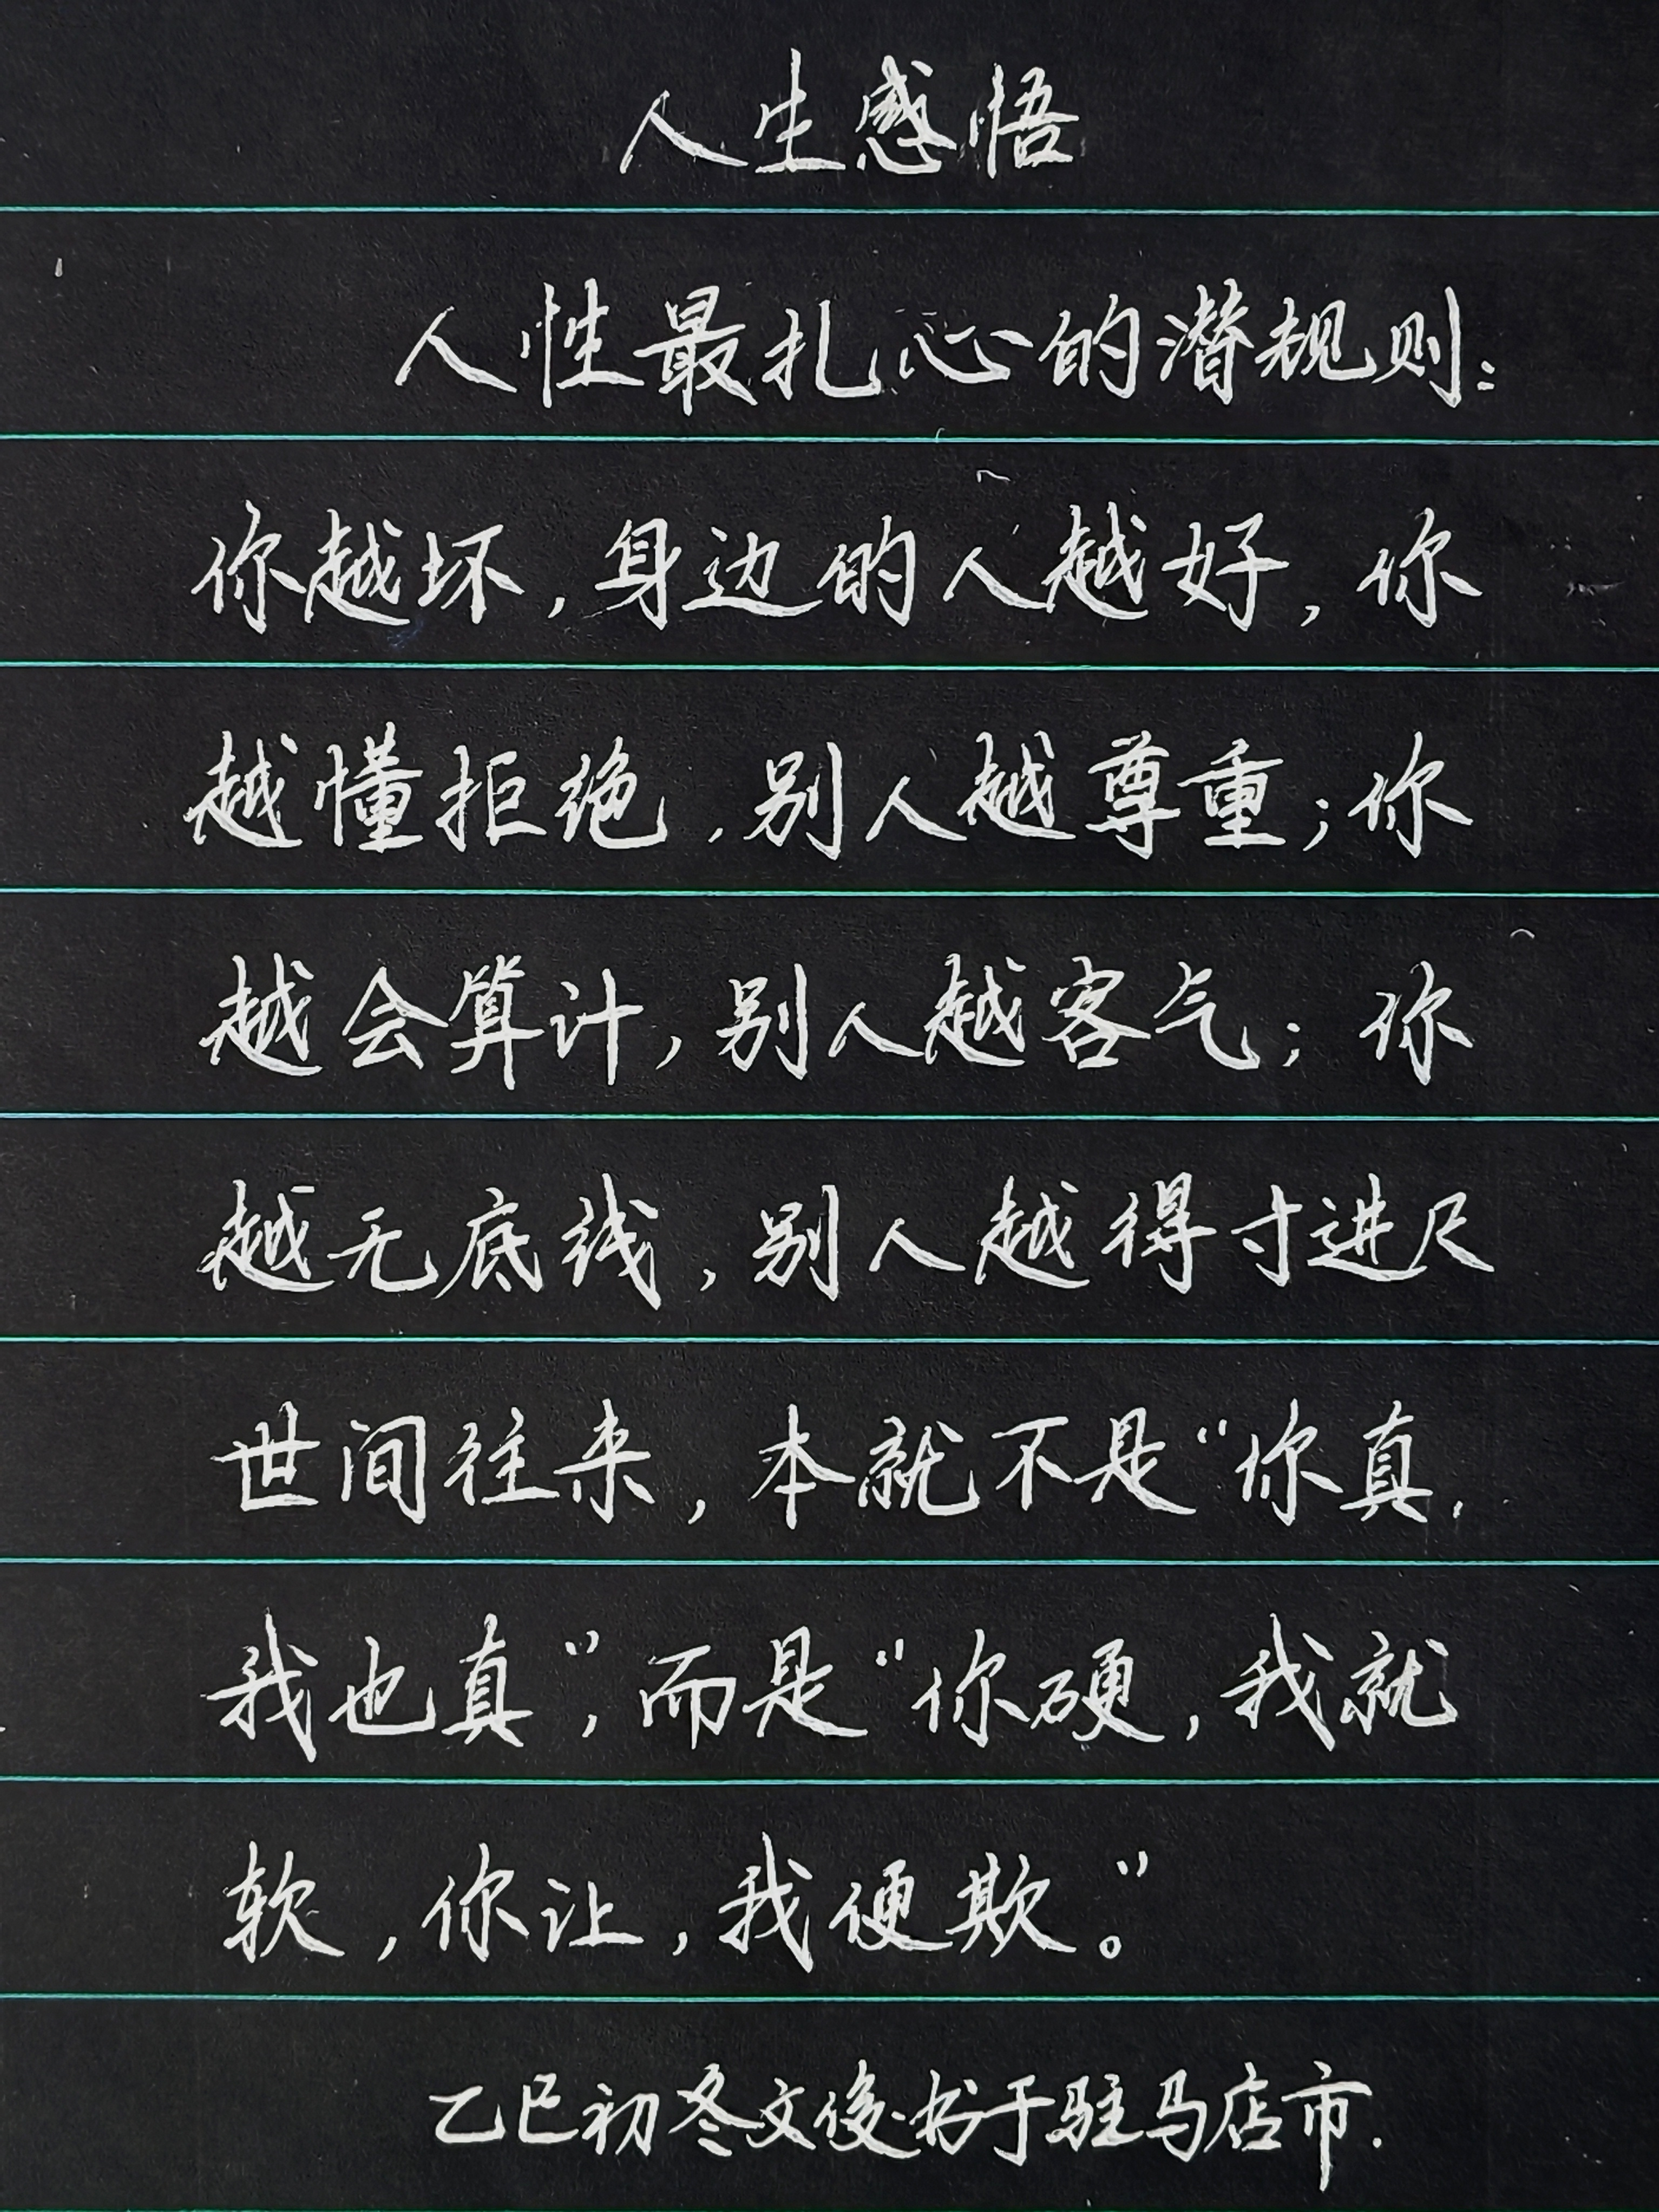 人生感悟
人性最扎心的潜规则：
你越坏，身边的人越好，你
越懂拒绝，别人越尊重；你
越会算计，别人越客气；你
越无底线，别人越得寸进尺
世间往来，本就不是“你真，
我也真”，而是“你硬，我就
软，你让，我便欺。”
乙巳初冬文俊书于驻马店市.